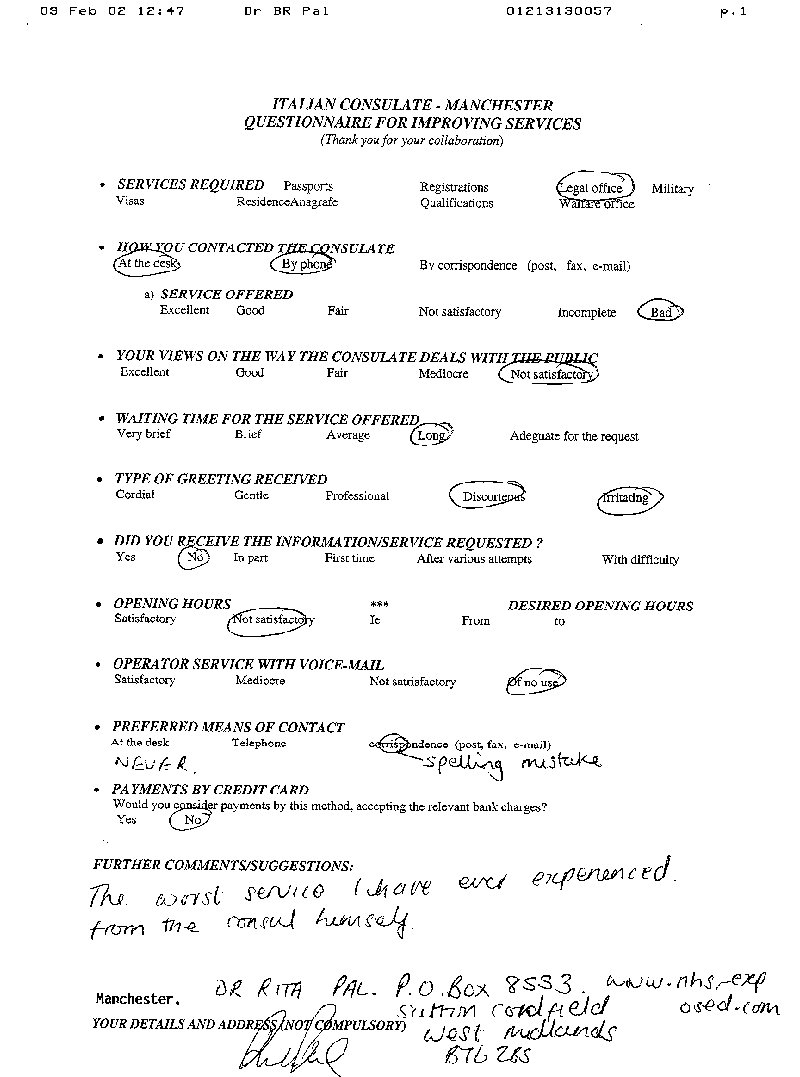 03 Feb 02 12:47 Dr BR Pal 01213130057 p.1
ITALIAN CONSULATE - MANCHESTER
QUESTIONNAIRE FOR IMPROVING SERVICES
(Thank you for your collaboration)
• SERVICES REQUIRED Passports Registrations Legal office Military
Visas ResidenceAnagrafe Qualifications Welfare office
• HOW YOU CONTACTED THE CONSULATE
At the desk By phone By corrispondence (post, fax, e-mail)
a) SERVICE OFFERED
Excellent Good Fair Not satisfactory Incomplete Bad
• YOUR VIEWS ON THE WAY THE CONSULATE DEALS WITH THE PUBLIC
Excellent Good Fair Mediocre Not satisfactory
• WAITING TIME FOR THE SERVICE OFFERED
Very brief Brief Average Long Adeguate for the request
• TYPE OF GREETING RECEIVED
Cordial Gentle Professional Discurteous Irritating
• DID YOU RECEIVE THE INFORMATION/SERVICE REQUESTED ?
Yes No In part First time After various attempts With difficulty
• OPENING HOURS *** DESIRED OPENING HOURS
Satisfactory Not satisfactory Ie From to
• OPERATOR SERVICE WITH VOICE-MAIL
Satisfactory Mediocre Not satisfactory Of no use
• PREFERRED MEANS OF CONTACT
At the desk Telephone corrispondence (post, fax, e-mail)
NEVER. spelling mistake
• PAYMENTS BY CREDIT CARD
Would you consider payments by this method, accepting the relevant bank charges?
Yes No
FURTHER COMMENTS/SUGGESTIONS:
The worst service I have ever experienced.
from the consul himself.
Manchester, DR RITA PAL. P.O. Box 8533. www.nhs-exp
Sutton Coldfield osed.com
YOUR DETAILS AND ADDRESS (NOT COMPULSORY) West Midlands